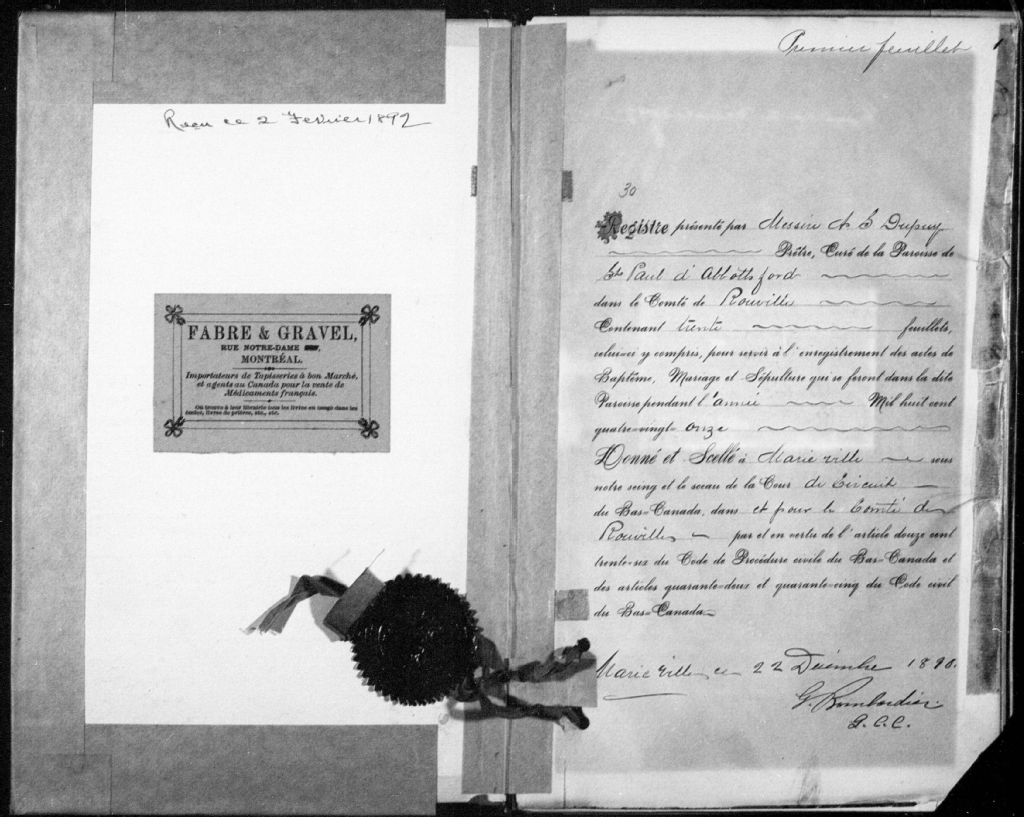 Reçu ce 2 Fevrier 1892
FABRE & GRAVEL,
RUE NOTRE-DAME
MONTRÉAL.
Importateurs de Tapisseries à bon Marché,
et agents au Canada pour la vente de
Médicaments français.
On trouve à leur librairie tous les livres en usage dans les
écoles, livres de prières, etc., etc.
Premier feuillet
1
30
Registre présenté par Messire N E Dupuy
Prêtre, Curé de la Paroisse de
St. Paul d'Abbottsford
dans le Comté de Rouville
Contenant trente feuillets,
celui-ci y compris, pour servir à l'enregistrement des actes de
Baptême, Mariage et Sépulture qui se feront dans la dite
Paroisse pendant l'année Mil huit cent
quatre-vingt onze
Donné et Scellé à Marieville sous
notre seing et le sceau de la Cour de Circuit
du Bas-Canada, dans et pour le Comté de
Rouville par et en vertu de l'article douze cent
trente-six du Code de Procédure civile du Bas-Canada et
des articles quarante-deux et quarante-cinq du Code civil
du Bas-Canada
Marieville ce 22 Décembre 1890.
G. Bombardier
G.C.C.